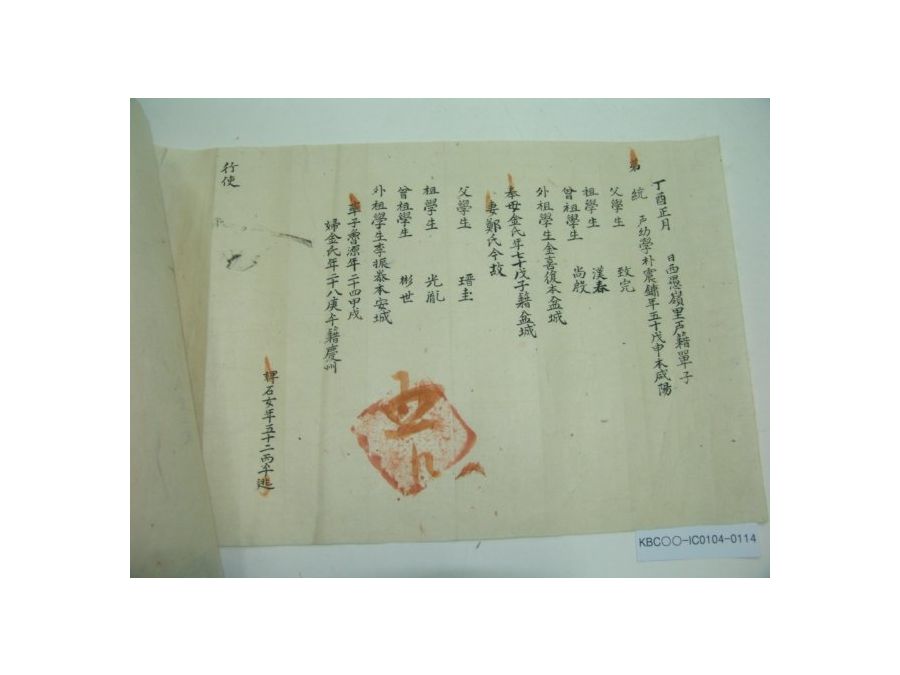 丁酉正月 日西憑嶺里戶籍單子
第 統 戶幼學朴震鏞年五十戊申本咸陽
父學生 致完
祖學生 漢春
曾祖學生 尚殷
外祖學生金喜復本盆城
奉母金氏年七十戊子籍盆城
妻鄭氏今故
父學生 瑨圭
祖學生 光胤
曾祖學生 彬世
外祖學生李振泰本安城
率子魯源年二十四甲戌
婦金氏年二十八庚午籍慶州
婢石女年五十二丙午逃
行使
KBC○○-IC0104-0114